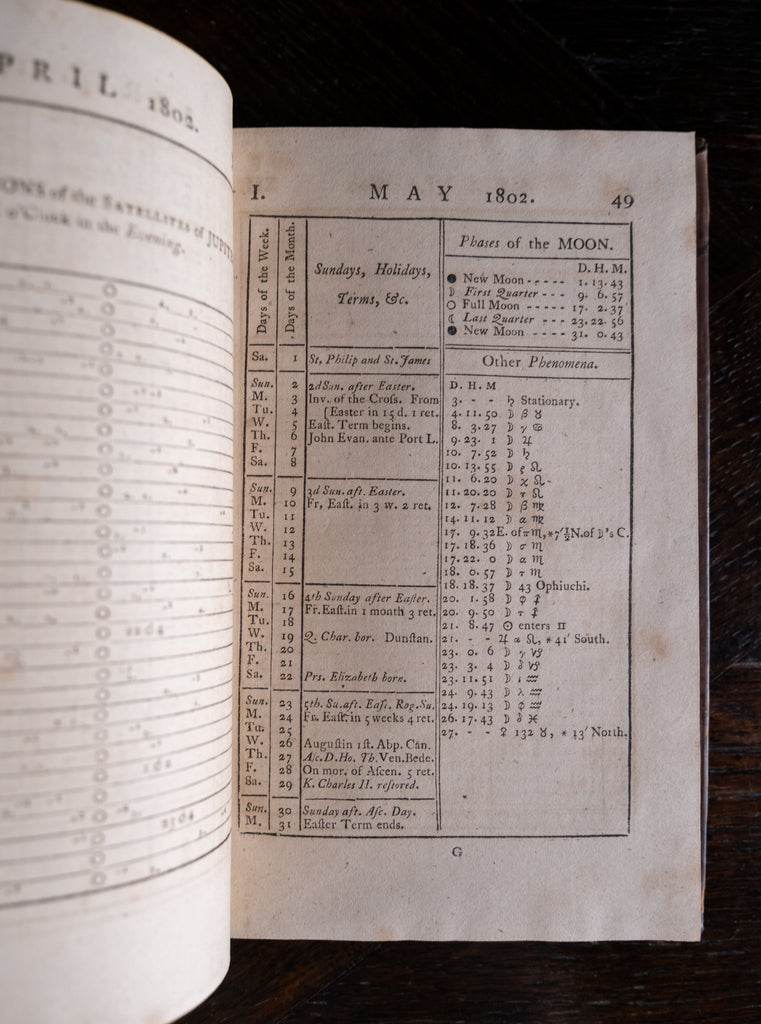 PRIL 1802.
ONS of the SATELLITES of JUPIT
o'Clock in the Evening.
I. MAY 1802. 49
Days of the Week.
Days of the Month.
Sundays, Holidays,
Terms, &c.
Phases of the MOON.
D. H. M.
● New Moon - - - - - 1. 13. 43
☽ First Quarter - - - 9. 6. 57
○ Full Moon - - - - - 17. 2. 37
☾ Last Quarter - - - 23. 22. 56
● New Moon - - - - 31. 0. 43
Other Phenomena.
Sa. 1 St. Philip and St. James
Sun. 2 2d Sun. after Easter.
M. 3 Inv. of the Croſs. From
Tu. 4 [Easter in 15 d. 1 ret.
W. 5 Eaſt. Term begins.
Th. 6 John Evan. ante Port L.
F. 7
Sa. 8
Sun. 9 3d Sun. aft. Easter.
M. 10 Fr. Eaſt. in 3 w. 2 ret.
Tu. 11
W. 12
Th. 13
F. 14
Sa. 15
Sun. 16 4th Sunday after Eaſter.
M. 17 Fr. Eaſt. in 1 month 3 ret.
Tu. 18
W. 19 Q. Char. bor. Dunſtan.
Th. 20
F. 21
Sa. 22 Prs. Elizabeth born.
Sun. 23 5th. Su. aft. Eaſt. Rog. Su.
M. 24 Fr. Eaſt. in 5 weeks 4 ret.
Tu. 25
W. 26 Auguſtin 1ſt. Abp. Can.
Th. 27 Aſc. D. Ho. Th. Ven. Bede.
F. 28 On mor. of Aſcen. 5 ret.
Sa. 29 K. Charles II. reſtored.
Sun. 30 Sunday aft. Aſc. Day.
M. 31 Eaſter Term ends.
D. H. M
3. - - ♄ Stationary.
4. 11. 50 ☽ β ♉
8. 3. 27 ☽ γ ♋
9. 23. 1 ☽ ♃
10. 7. 52 ☽ ♄
10. 13. 55 ☽ ρ ♌
11. 6. 20 ☽ χ ♌
11. 20. 20 ☽ τ ♌
12. 7. 28 ☽ β ♍
14. 11. 12 ☽ α ♍
17. 9. 32 E. of π ♏, * 7'½ N. of ☽'s C.
17. 18. 36 ☽ σ ♏
17. 22. 0 ☽ α ♏
18. 0. 57 ☽ τ ♏
18. 18. 37 ☽ 43 Ophiuchi.
20. 1. 58 ☽ φ ♐
20. 9. 50 ☽ τ ♐
21. 8. 47 ☉ enters ♊
21. - - ♃ α ♌, * 41' South.
23. 0. 6 ☽ γ ♑
23. 3. 4 ☽ δ ♑
23. 11. 51 ☽ ι ♒
24. 9. 43 ☽ λ ♒
24. 19. 13 ☽ φ ♒
26. 17. 43 ☽ δ ♓
27. - - ♀ 132 ♉, * 13' North.
G